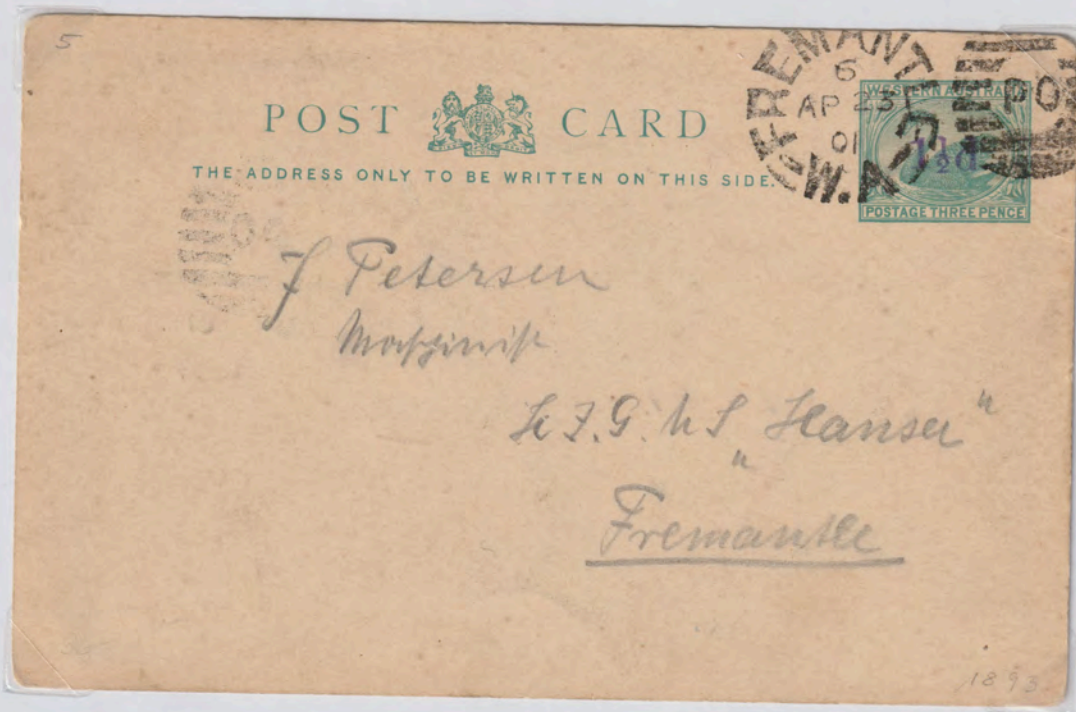 5
POST CARD
THE ADDRESS ONLY TO BE WRITTEN ON THIS SIDE.
FREMANTLE
6
AP 23
01
W.A
PO
WESTERN AUSTRALIA
1½d
POSTAGE THREE PENCE
J Petersen
Maschinist
S.M.S. „Hansa“
Fremantle
1893